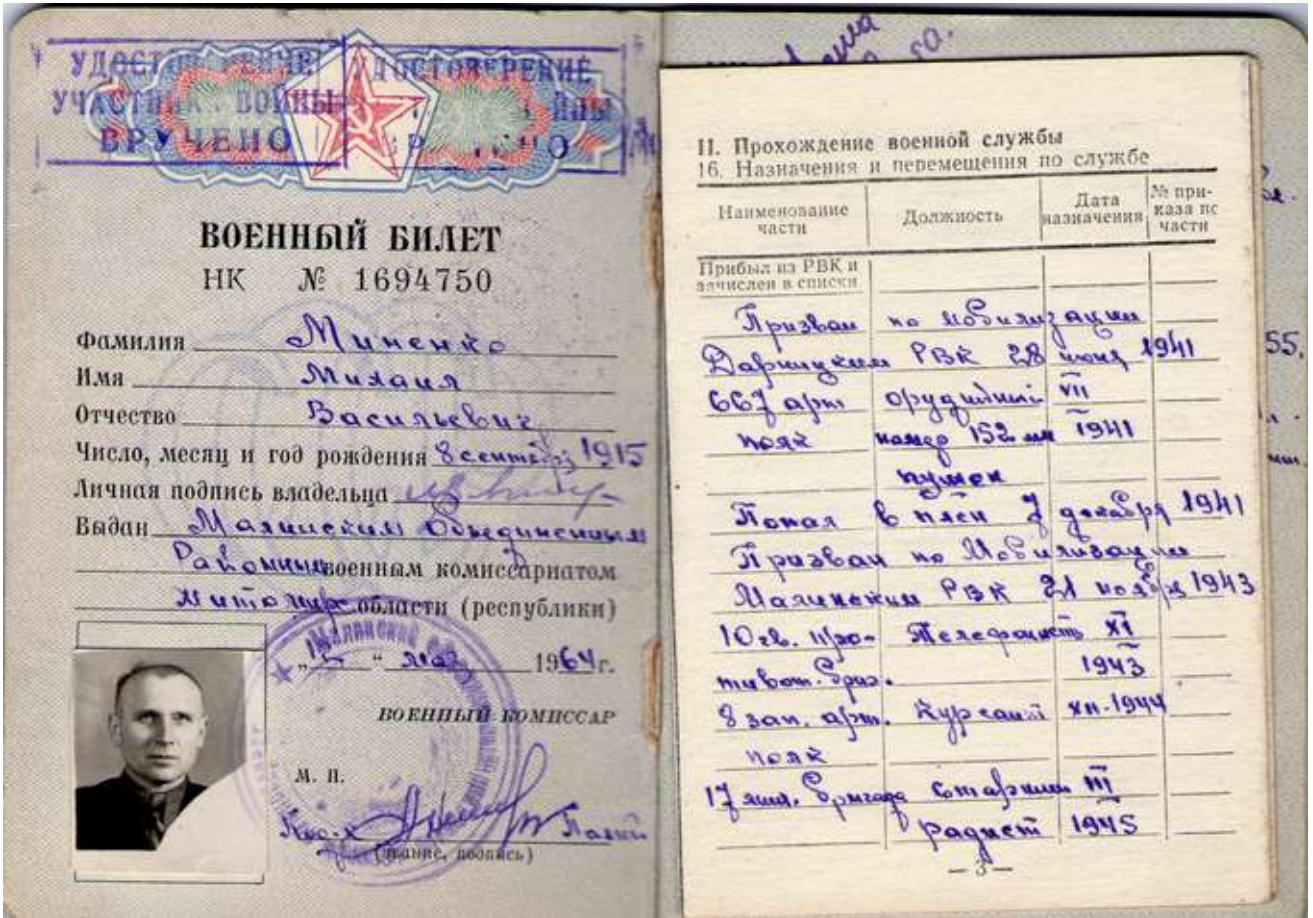 УДОСТОВЕРЕНИЕ УДОСТОВЕРЕНИЕ
УЧАСТНИКА ВОЙНЫ ВОЙНЫ
ВРУЧЕНО ВРУЧЕНО
ВОЕННЫЙ БИЛЕТ
НК № 1694750
Фамилия Миненко
Имя Михаил
Отчество Васильевич
Число, месяц и год рождения 8 сентября 1915
Личная подпись владельца
Выдан Малинским Объединенным
Районным военным комиссариатом
Житомирс. области (республики)
мая 1964 г.
ВОЕННЫЙ КОМИССАР
М. П.
(звание, подпись)
II. Прохождение военной службы
16. Назначения и перемещения по службе
Наименование части Должность Дата назначения № приказа по части
Прибыл из РВК и
зачислен в списки
Призван по мобилизации
Дарницким РВК 28 июня 1941
667 арт орудийный VII
полк номер 152 мм 1941
пушек
Попал в плен 7 декабря 1941
Призван по Мобилизации
Малинским РВК 21 ноября 1943
10 гв. про- Телефонист XI
тивот. бриг. 1943
8 зап. арт. Курсант XII-1944
полк
17 бригада Старший III
радист 1945
— 3 —
55.